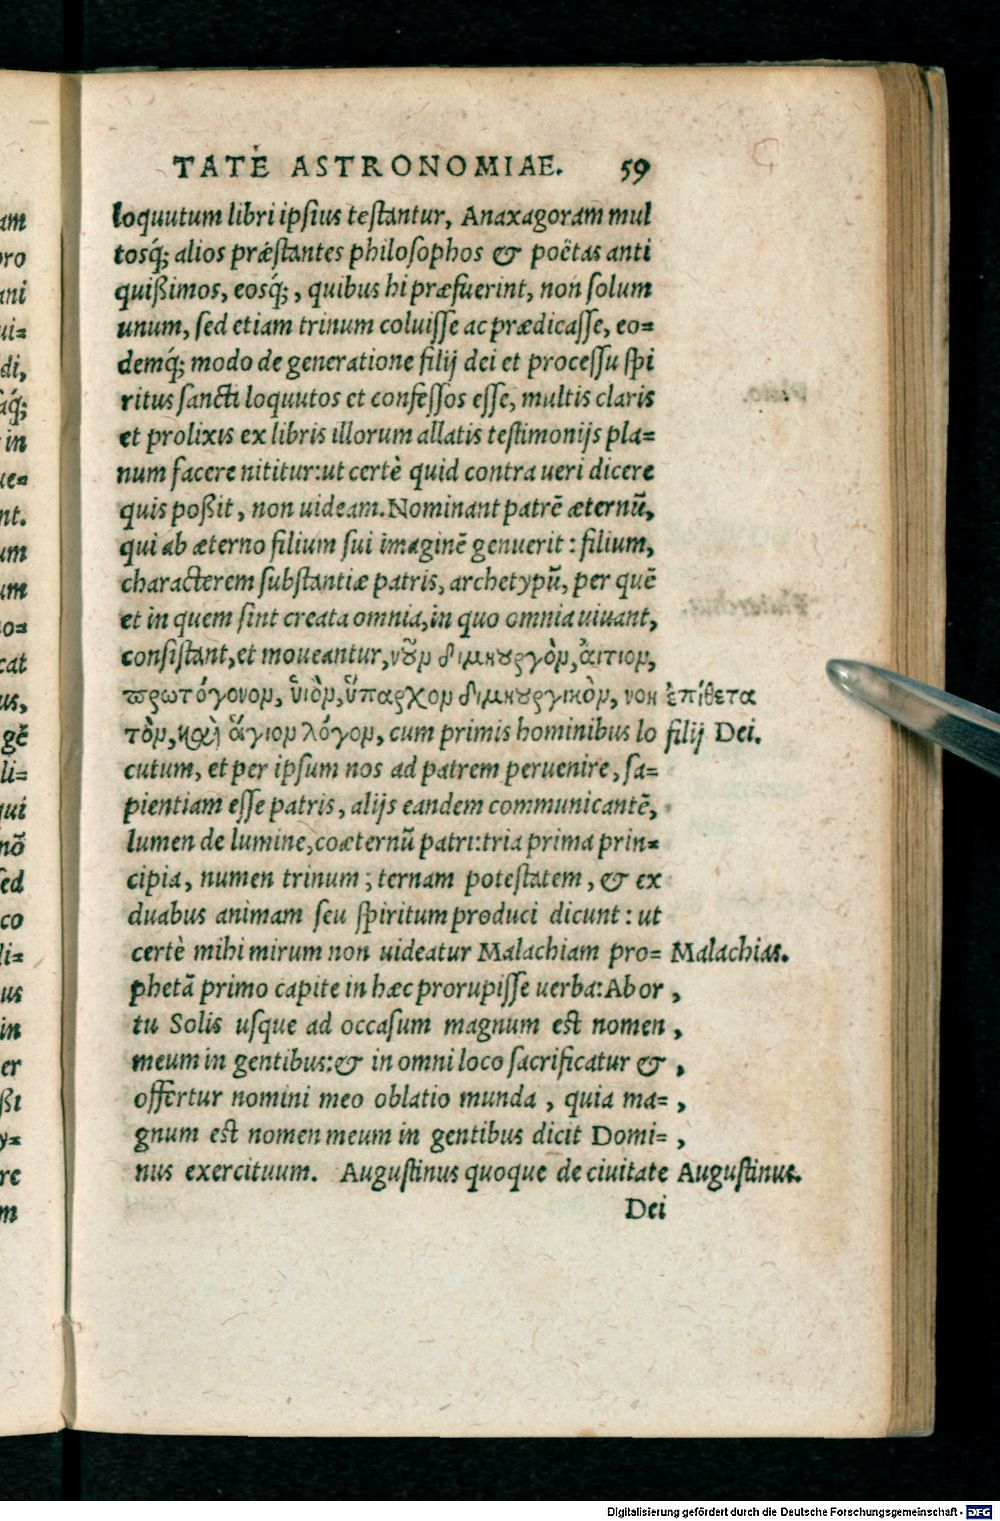 TATE ASTRONOMIAE. 59
loquutum libri ipsius testantur, Anaxagoram mul
tosq́; alios præstantes philosophos & poëtas anti
quißimos, eosq́;, quibus hi præfuerint, non solum
unum, sed etiam trinum coluisse ac prædicasse, eo=
demq́; modo de generatione filij dei et processu spi
ritus sancti loquutos et confessos esse, multis claris
et prolixis ex libris illorum allatis testimonijs pla=
num facere nititur: ut certè quid contra ueri dicere
quis poßit, non uideam. Nominant patrē æternū,
qui ab æterno filium sui imaginē genuerit: filium,
characterem substantiæ patris, archetypū, per quē
et in quem sint creata omnia, in quo omnia uiuant,
consistant, et moueantur, νȣ̃ν διμιȣργὸν, ἄιτιον,
πρωτόγονον, ὑιὸν, ὕπαρχον διμιȣργικὸν, νοη ἐπίθετα
τὸν, καὶ ἅγιον λόγον, cum primis hominibus lo filij Dei.
cutum, et per ipsum nos ad patrem peruenire, sa=
pientiam esse patris, alijs eandem communicantē,
lumen de lumine, coæternū patri: tria prima prin=
cipia, numen trinum; ternam potestatem, & ex
duabus animam seu spiritum produci dicunt: ut
certè mihi mirum non uideatur Malachiam pro= Malachias.
phetā primo capite in hæc prorupisse uerba: Ab or ,
tu Solis usque ad occasum magnum est nomen ,
meum in gentibus: & in omni loco sacrificatur & ,
offertur nomini meo oblatio munda, quia ma= ,
gnum est nomen meum in gentibus dicit Domi= ,
nus exercituum. Augustinus quoque de ciuitate Augustinus.
Dei
am
pro
ani
ui=
di,
aq́;
in
ue=
nt.
um
um
no=
cat
us,
gē
li=
qui
nō
sed
co
li=
us
in
er
ßi
y=
re
m
Digitalisierung gefördert durch die Deutsche Forschungsgemeinschaft - DFG